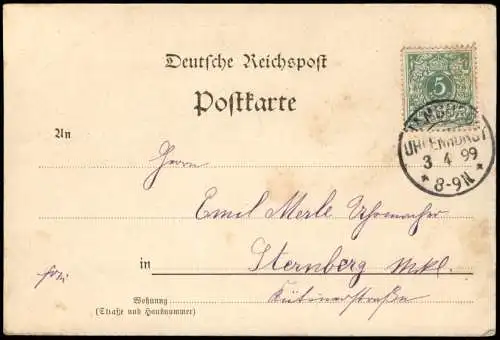 Deutsche Reichspost
Postkarte
5
HAMBURG
UHLENHORST
3 4 99
* 8-9N *
An
Herrn
Emil Merle Uhrmacher
in Sternberg Mekl.
Wohnung
(Straße und Hausnummer)
Kütinerstraße